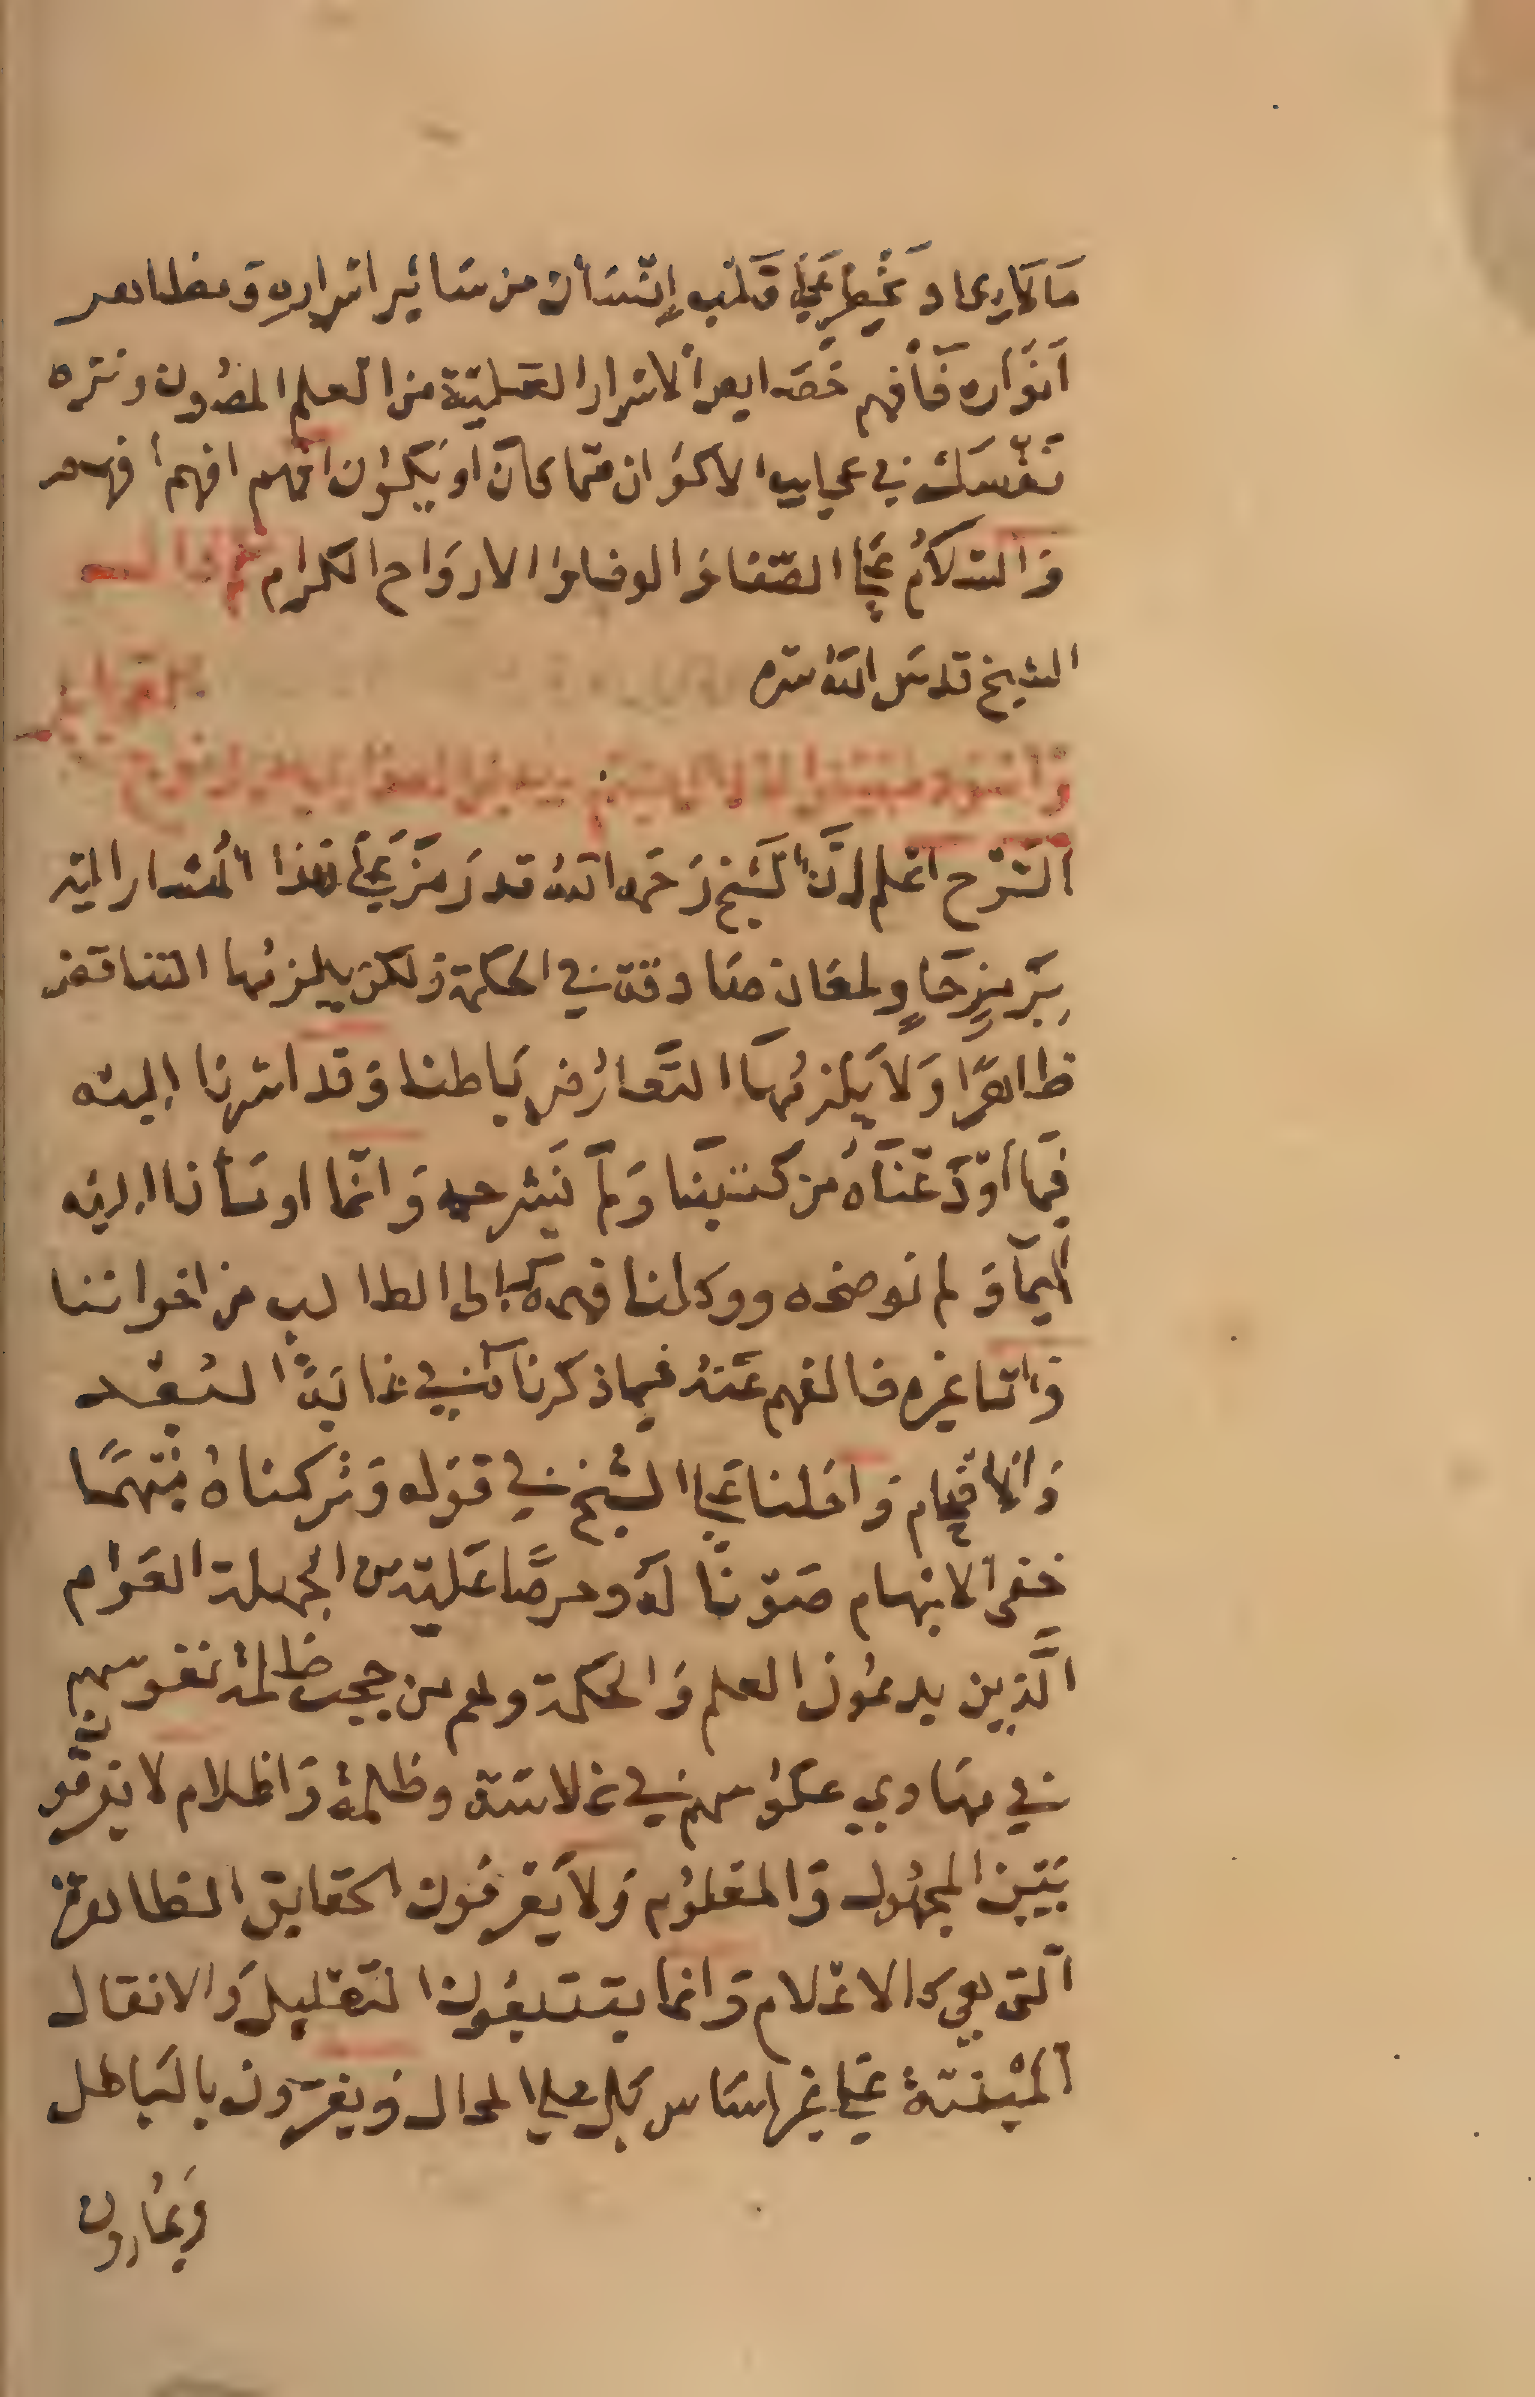 مَا كَا يكاد يَخْطر عَلي قَلب إِنسَان من سَائر اسراره وَمظاهر
اَنوَاره فَافهم خصَايص الاسرار العَلميّة من العلم المصُون ونزه
نَفسَك في عجايب الاكوَان ممّا كانَ او يَكوُن افهم افهم فهم
وَالسلاَمُ عَلي الصّفا وَالوفا وَالاروَاح الكرام
الشيخ قدسَ الله سَره
الشرْح اعْلم اِنَّ الشَيخ رَحمَه الله قد رَمزَ عَلي هَذا المشار اليه
بِرَمزٍ حَاوٍ لمعَان صَادقة في الحكمة وَلكن يلزمُها التناقض
ظاهرًا وَلاَ يَلزمُهَا التَّعارُض بَاطنا وَقد اشرنا اليه
فيمَا اَوْدَعْنَاهُ من كتبنَا وَلم نَشرحه وَانّما اومَأنا اليه
ايمآ وَلم نوضحه ووكلنا فهمه الى الطالب من اخواننا
وَامّا غيره فالفهم عَنهُ فيما ذكرناه في غايَة البُعْد
وَالافهَام وَاحَلنا عَلي الشيخ في قَوله وَتركناهُ مُبْهمًا
خفى الابهام صَوْنًا لهُ وحرصًا عَليه من الجهلة العَوَام
الَّذين يدعُون العلم وَالحكمة وهم من حجب ظلمة نفوسهم
في مهَاوي عكوسهم في غلاسَة وظلمة وَاظلام لا يفرقون
بَين المجهُول وَالمعلوُم وَلاَ يَعْرفُون الحقايق الظاهرة
التي هي كالاعْلام وَانما يتبعُون التَعليل وَالانقال
المبْنيّة عَلي غير اسَاس بَل علي المحال وَيغرّون بالبَاطل
وَيمارُون